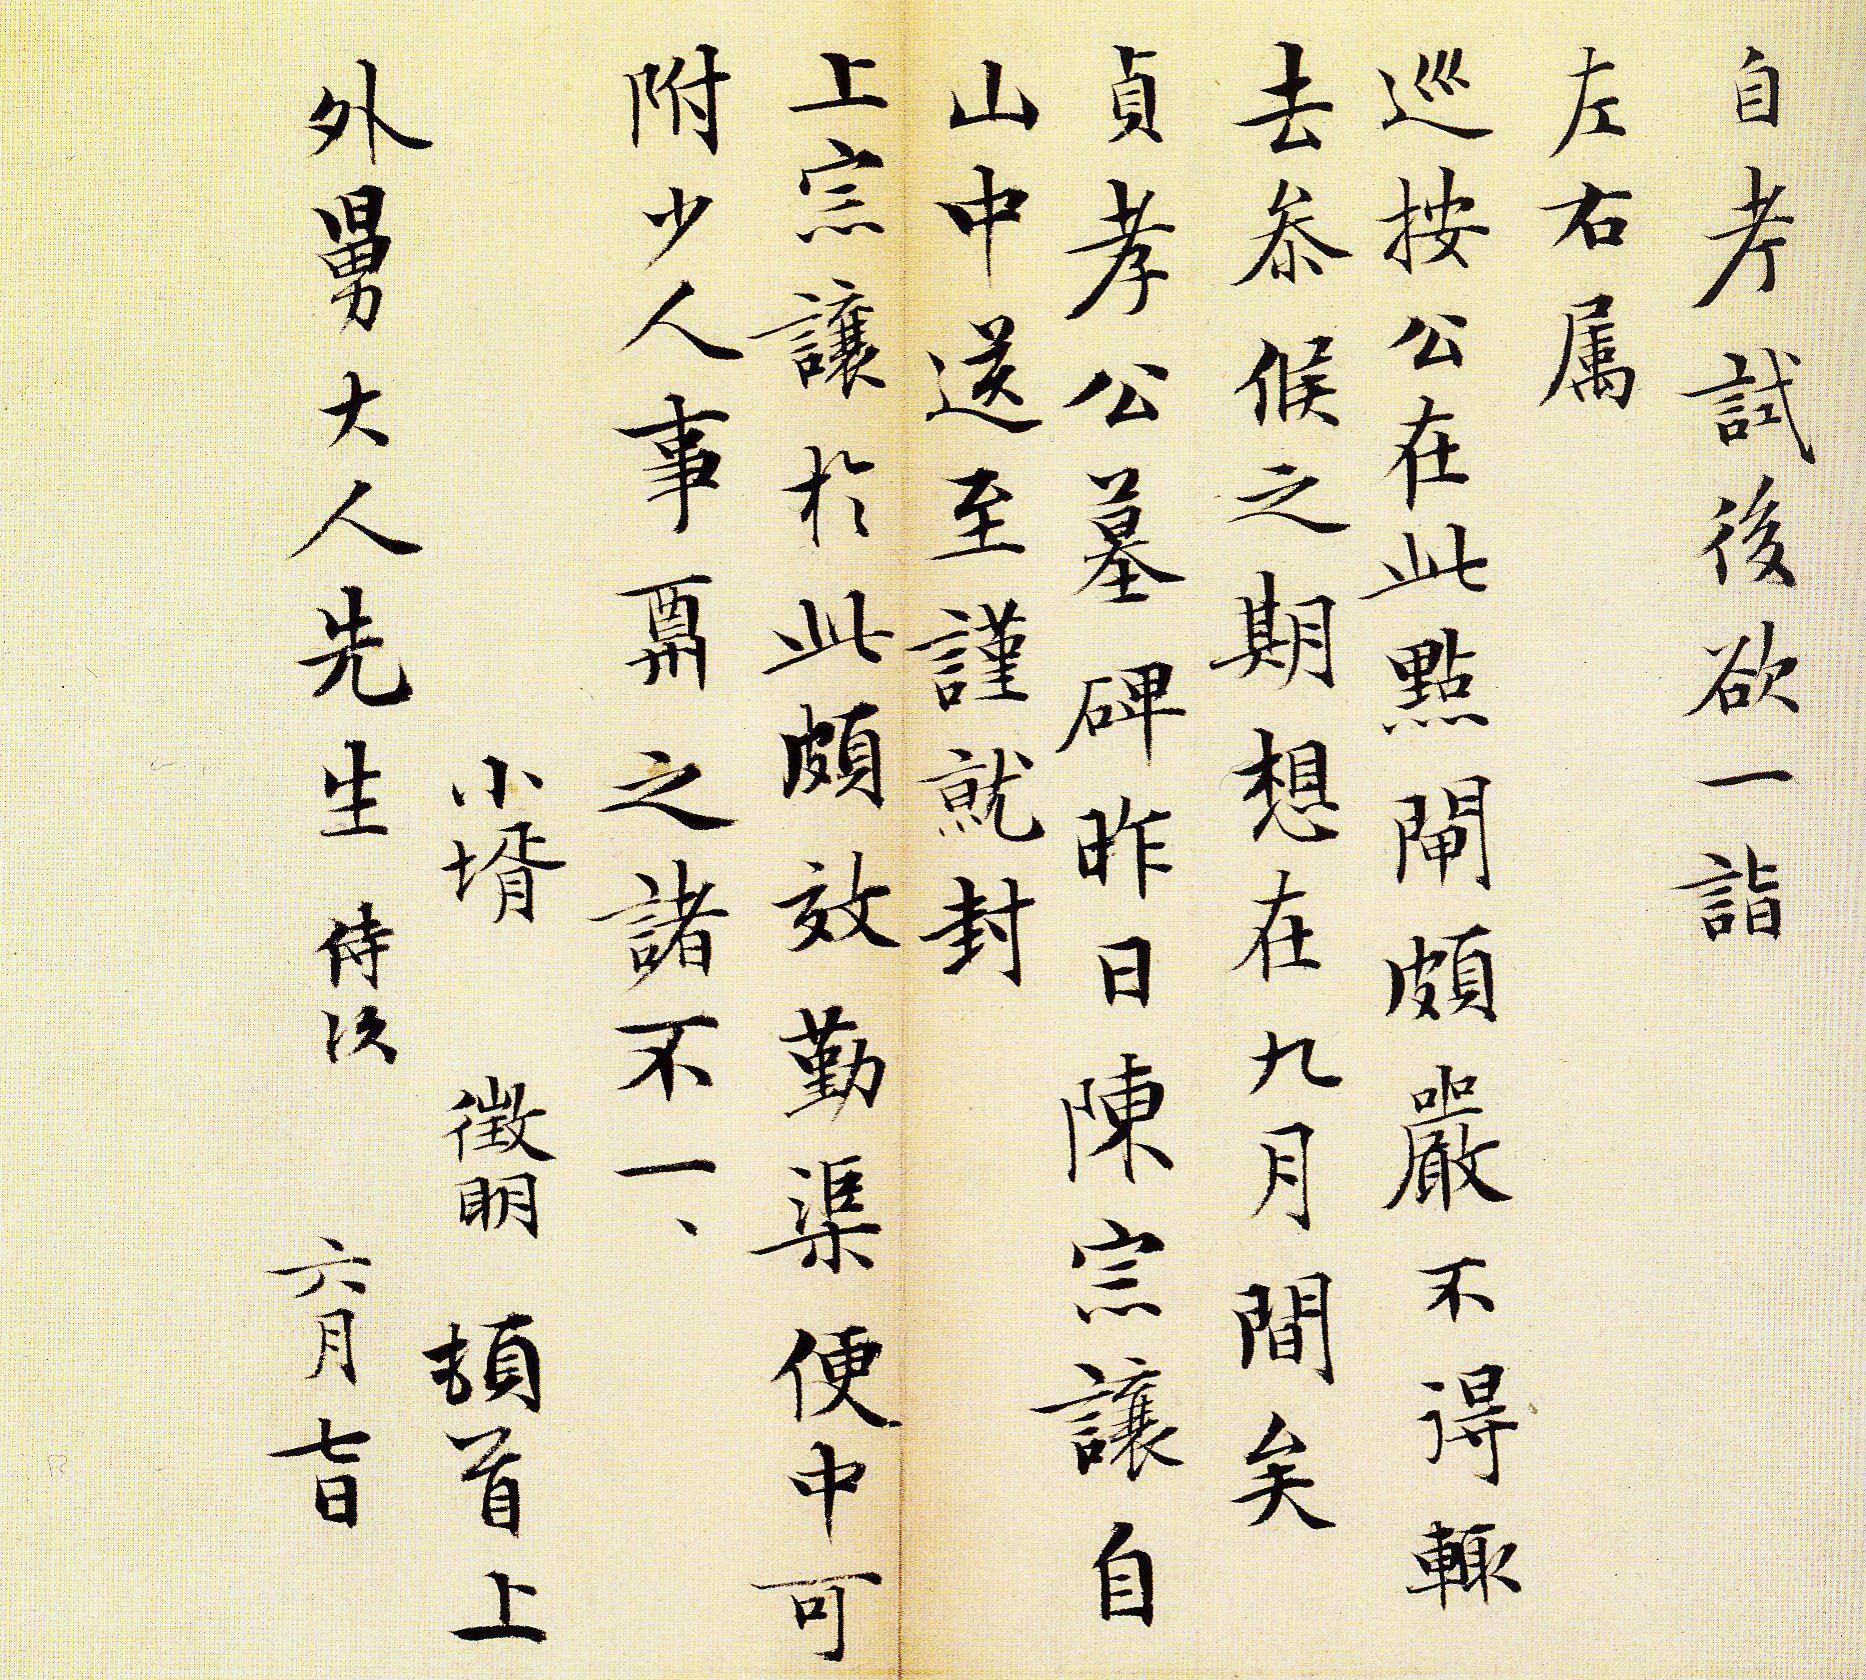 自考試後欲一詣
左右屬
巡按公在此點閘頗嚴不得輙
去叅候之期想在九月間矣
貞孝公墓碑昨日陳宗讓自
山中送至謹就封
上宗讓於此頗效勤渠便中可
附少人事再之諸不一、
小壻 徵明 頓首上
外舅大人先生 侍次 六月七日